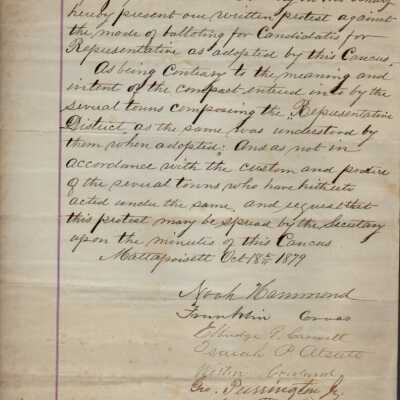 hereby present our written protest against
the mode of balloting for Candidates for
Representative as adopted by this Caucus.
As being Contrary to the meaning and
intent of the compact entered into by the
several towns composing the Representative
District, as the same was understood by
them when adopted. And as not in
accordance with the custom and
of the several towns who have hitherto
acted under the same, and request that
this protest may be spread by the Secretary
upon the minutes of this Caucus
Mattapoisett Oct 18th 1879
Noah Hammond
Franklin Cross
Isaiah P Atsatt
Geo. Purrington Jr.